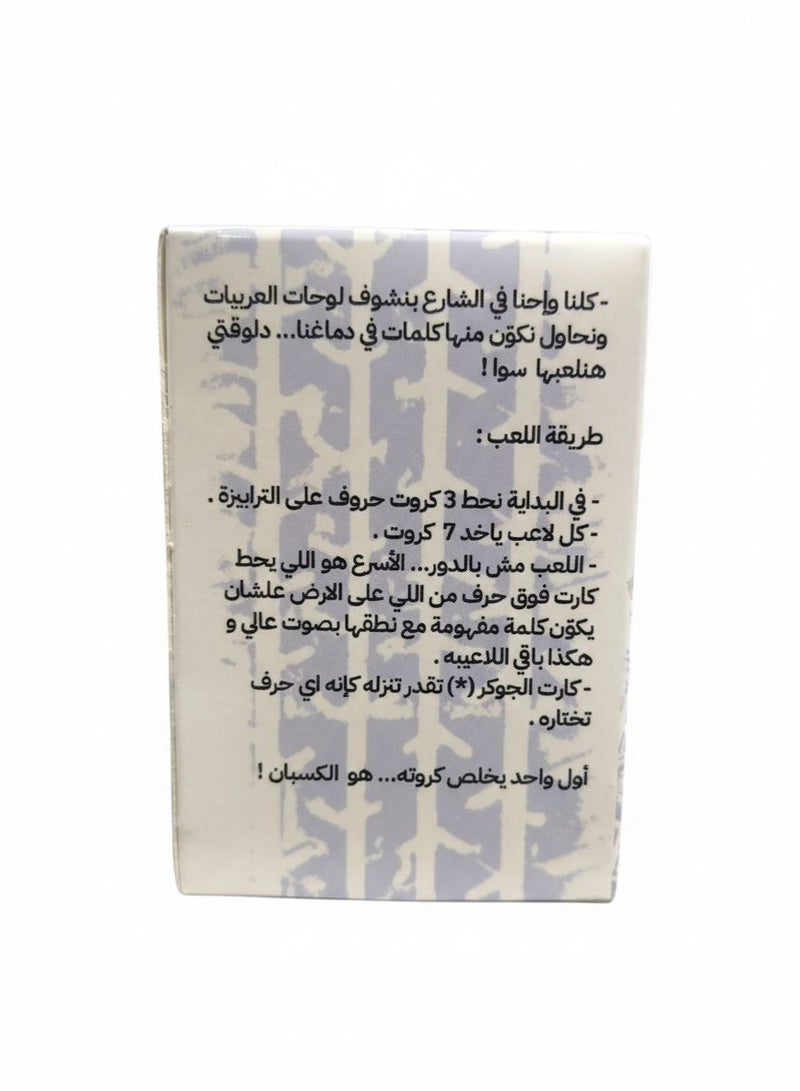 - كلنا وإحنا في الشارع بنشوف لوحات العربيات
ونحاول نكوّن منها كلمات في دماغنا... دلوقتي
هنلعبها سوا !
طريقة اللعب :
- في البداية نحط 3 كروت حروف على الترابيزة .
- كل لاعب ياخد 7 كروت .
- اللعب مش بالدور... الأسرع هو اللي يحط
كارت فوق حرف من اللي على الارض علشان
يكوّن كلمة مفهومة مع نطقها بصوت عالي و
هكذا باقي اللاعيبه .
- كارت الجوكر (*) تقدر تنزله كإنه اي حرف
تختاره .
أول واحد يخلص كروته... هو الكسبان !